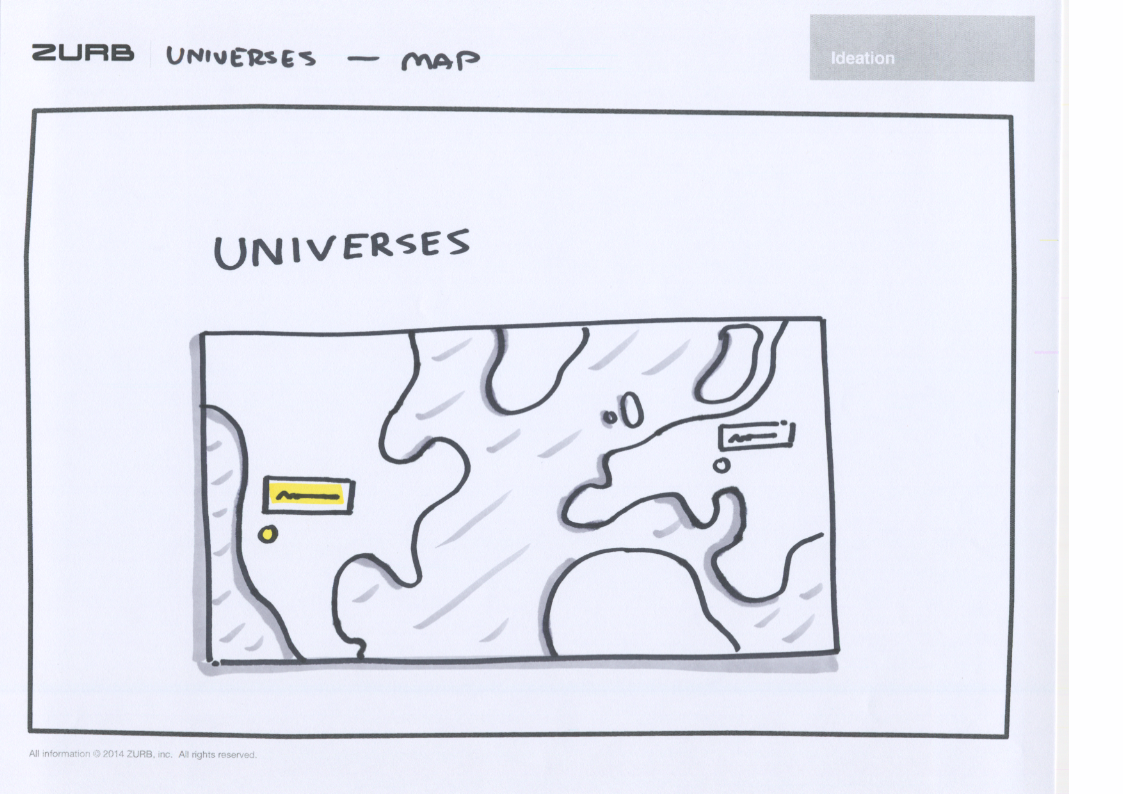 ZURB UNIVERSES — MAP
Ideation
UNIVERSES
All information © 2014 ZURB, inc. All rights reserved.